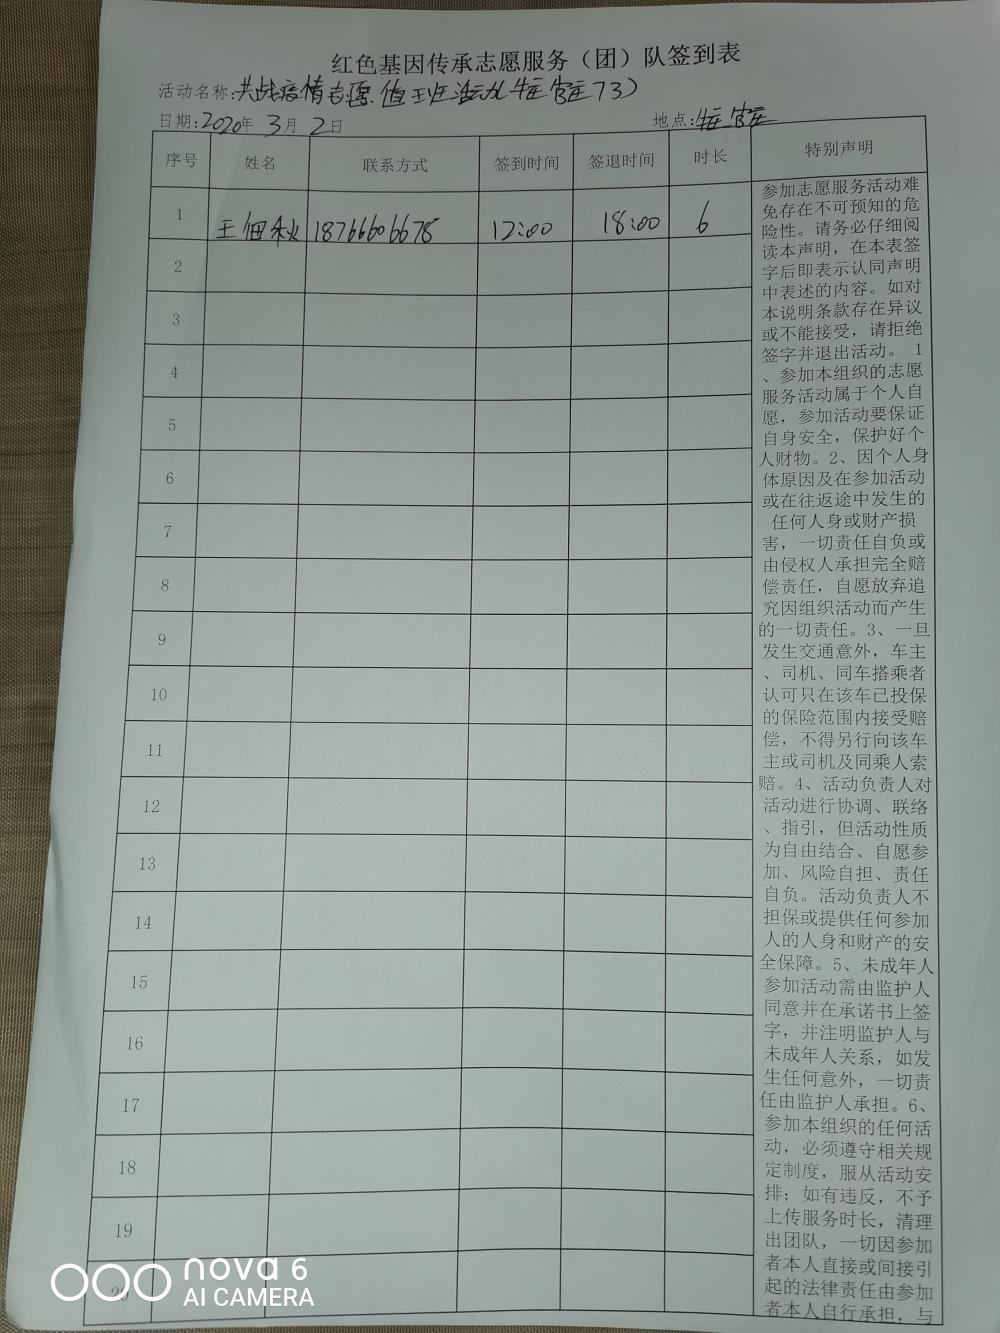 红色基因传承志愿服务（团）队签到表
活动名称:共战疫情志愿值班活动 73)
日期:2020年3月2日 地点:
序号 姓名 联系方式 签到时间 签退时间 时长 特别声明
1 王佃秋 18766606678 12:00 18:00 6
2
3
4
5
6
7
8
9
10
11
12
13
14
15
16
17
18
19
20
参加志愿服务活动难
免存在不可预知的危
险性。请务必仔细阅
读本声明，在本表签
字后即表示认同声明
中表述的内容。如对
本说明条款存在异议
或不能接受，请拒绝
签字并退出活动。 1
、参加本组织的志愿
服务活动属于个人自
愿，参加活动要保证
自身安全，保护好个
人财物。2、因个人身
体原因及在参加活动
或在往返途中发生的
任何人身或财产损
害，一切责任自负或
由侵权人承担完全赔
偿责任，自愿放弃追
究因组织活动而产生
的一切责任。3、一旦
发生交通意外，车主
、司机、同车搭乘者
认可只在该车已投保
的保险范围内接受赔
偿，不得另行向该车
主或司机及同乘人索
赔。4、活动负责人对
活动进行协调、联络
、指引，但活动性质
为自由结合、自愿参
加、风险自担、责任
自负。活动负责人不
担保或提供任何参加
人的人身和财产的安
全保障。5、未成年人
参加活动需由监护人
同意并在承诺书上签
字，并注明监护人与
未成年人关系，如发
生任何意外，一切责
任由监护人承担。6、
参加本组织的任何活
动，必须遵守相关规
定制度，服从活动安
排；如有违反，不予
上传服务时长，清理
出团队，一切因参加
者本人直接或间接引
起的法律责任由参加
者本人自行承担，与
nova 6
AI CAMERA